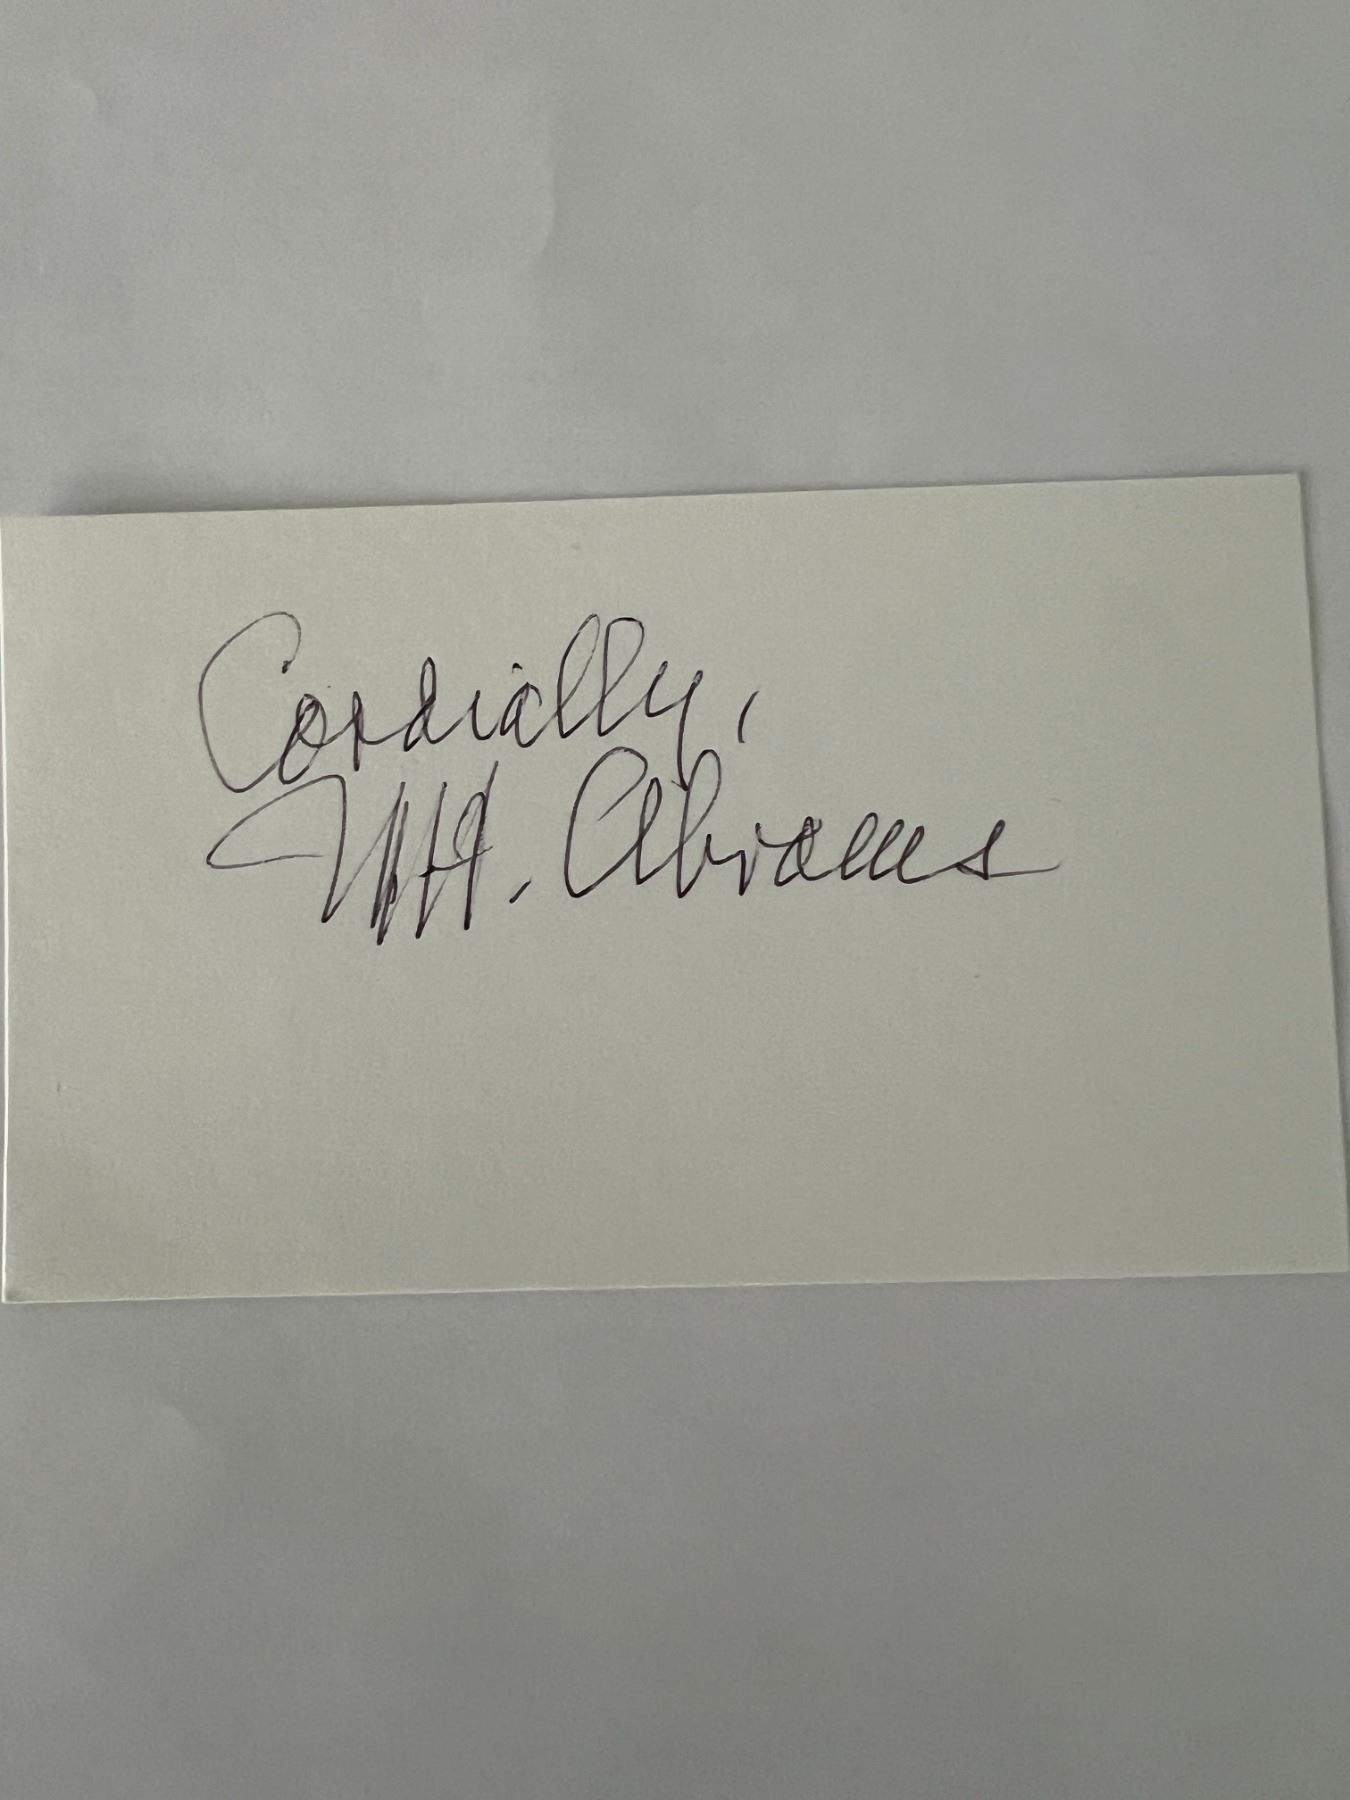 Cordially,
MH. Abrams